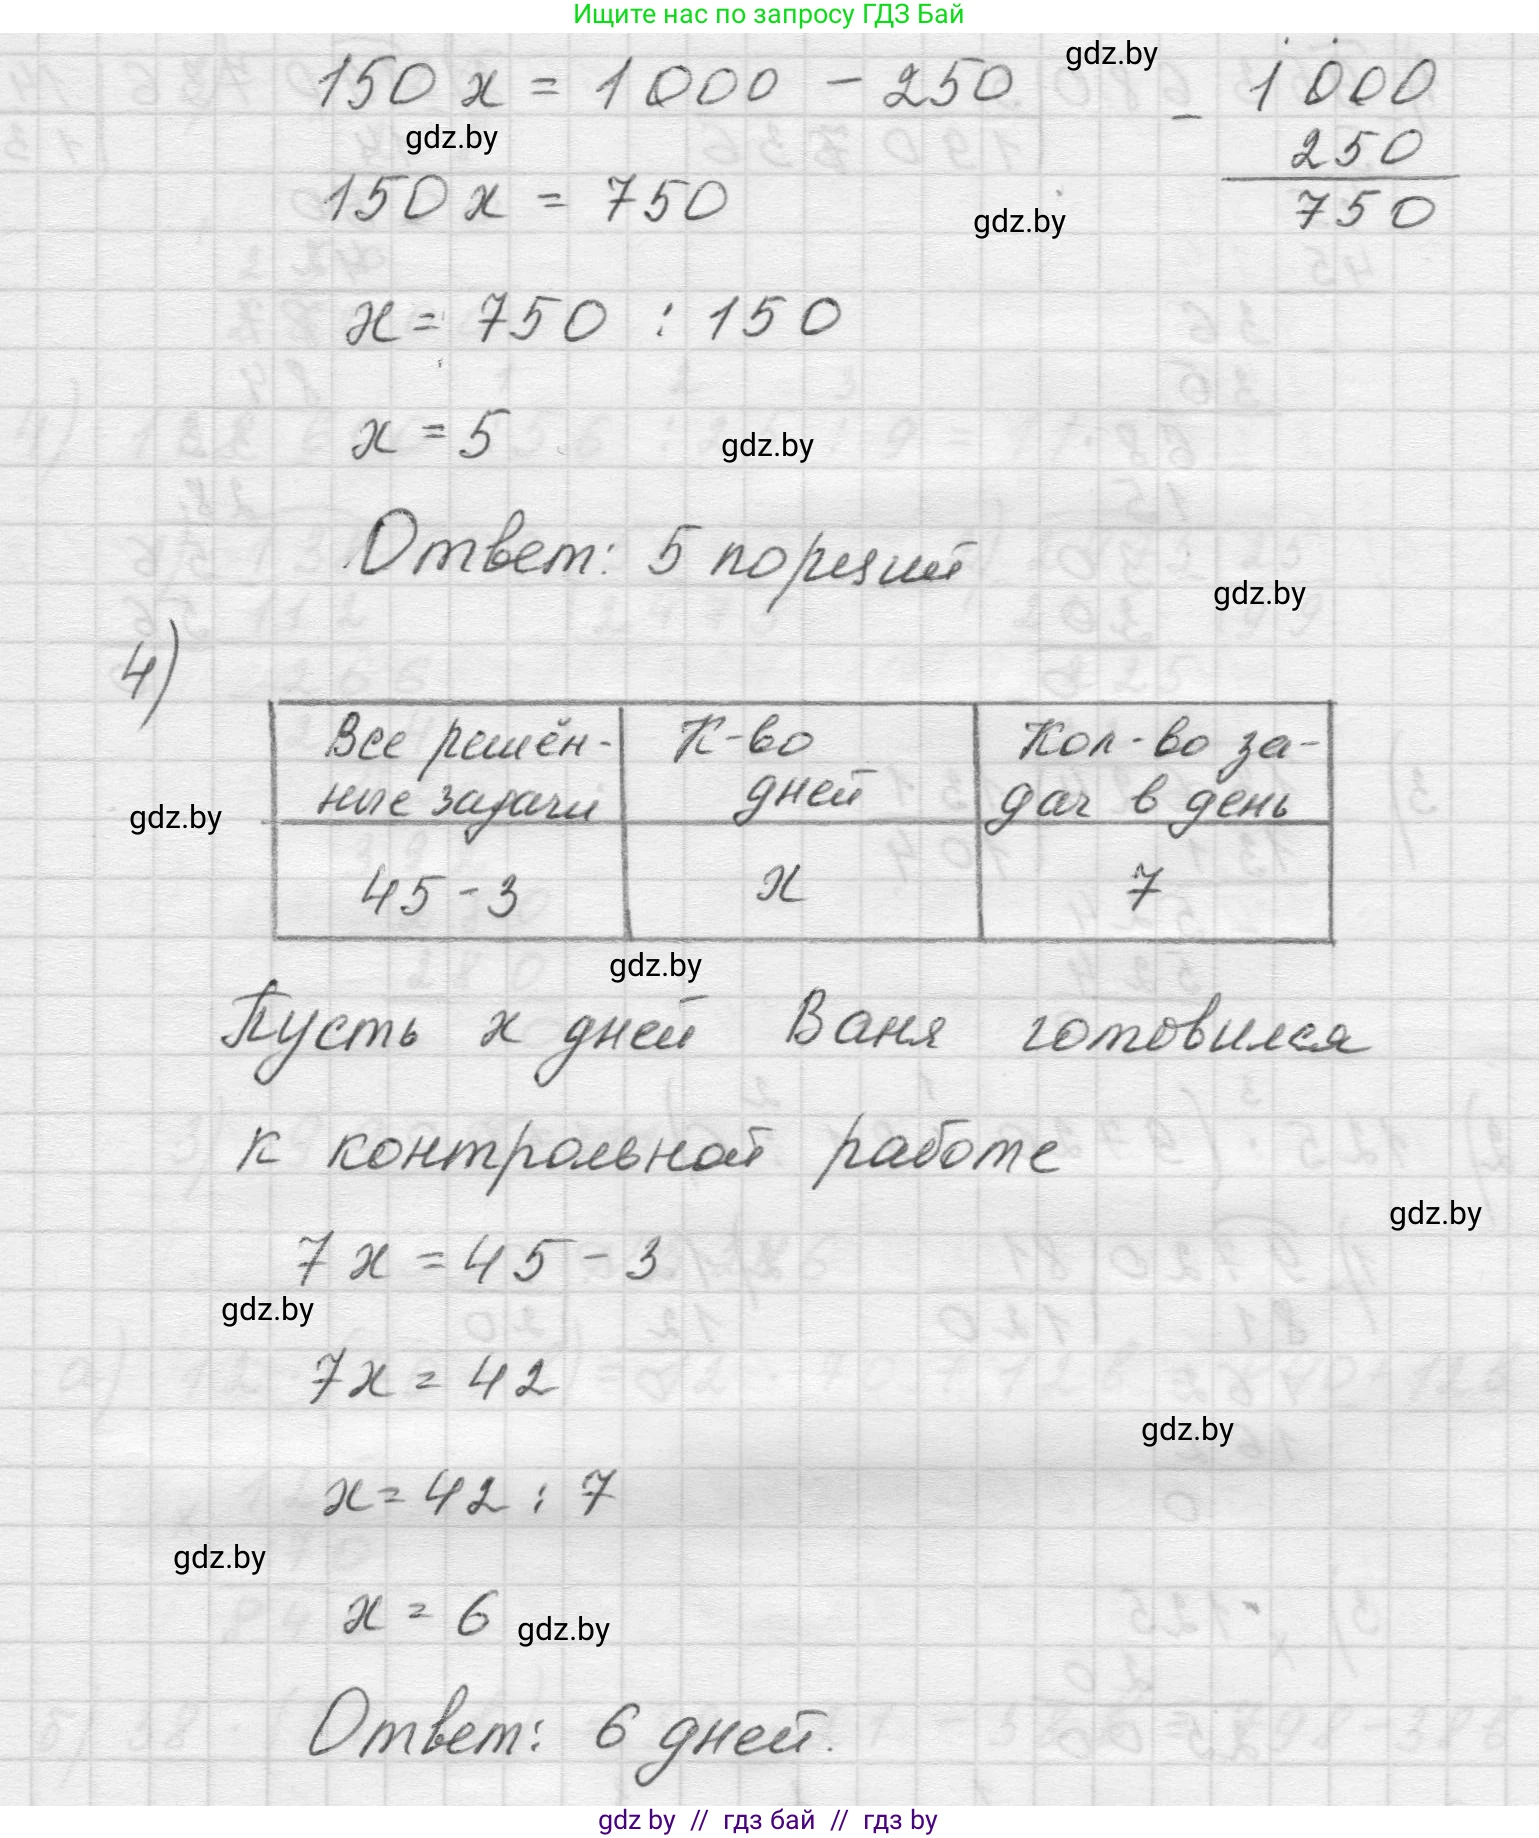 Ищите нас по запросу ГДЗ Бай
150 x = 1000 - 250
gdz.by
1000
- 250
750
gdz.by
150 x = 750
gdz.by
x = 750 : 150
x = 5
gdz.by
Ответ: 5 порций
gdz.by
4)
Все решён-
ные задачи
К-во
дней
Кол-во за-
дач в день
gdz.by
45 - 3
x
7
gdz.by
Пусть x дней Ваня готовился
к контрольной работе
gdz.by
7x = 45 - 3
gdz.by
7x = 42
gdz.by
x = 42 : 7
gdz.by
x = 6
gdz.by
Ответ: 6 дней.
gdz by // гдз бай // гдз by